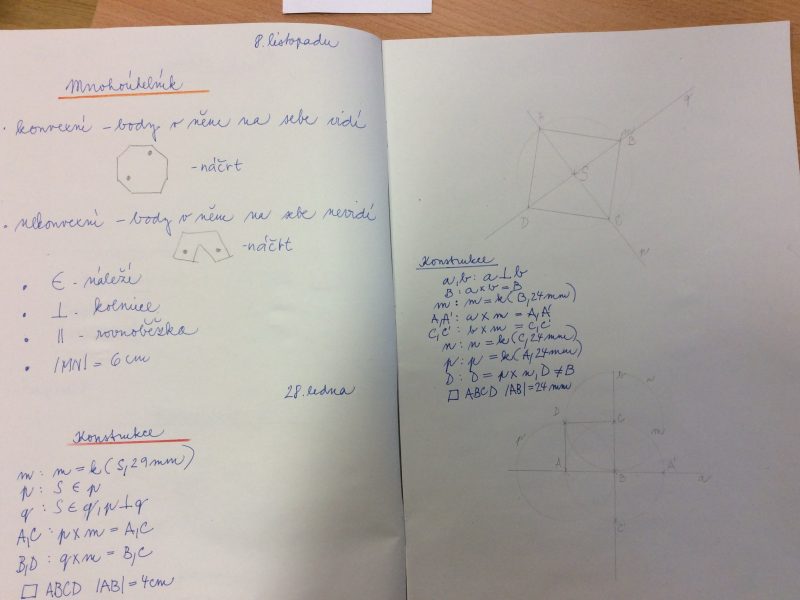 8. listopadu
Mnohoúhelník
· konvexní – body v něm na sebe vidí
- náčrt
· nekonvexní – body v něm na sebe nevidí
- náčrt
· ∈ - náleží
· ⊥ - kolmice
· || - rovnoběžka
· |MN| = 6 cm
28. ledna
Konstrukce
m: m = k(S, 29mm)
p: S ∈ p
q: S ∈ q, p ⊥ q
A,C: p x m = A,C
B,D: q x m = B,C
□ ABCD |AB| = 4cm
q
A
B
S
D
C
p
Konstrukce
a,b: a ⊥ b
B: a x b = B
m: m = k(B, 24mm)
A,A': a x m = A,A'
C,C': b x m = C,C'
n: n = k(C, 24mm)
p: p = k(A, 24mm)
D: D = p x n, D ≠ B
□ ABCD |AB| = 24mm
b
n
D
C
p
m
A
B
A'
a
C'